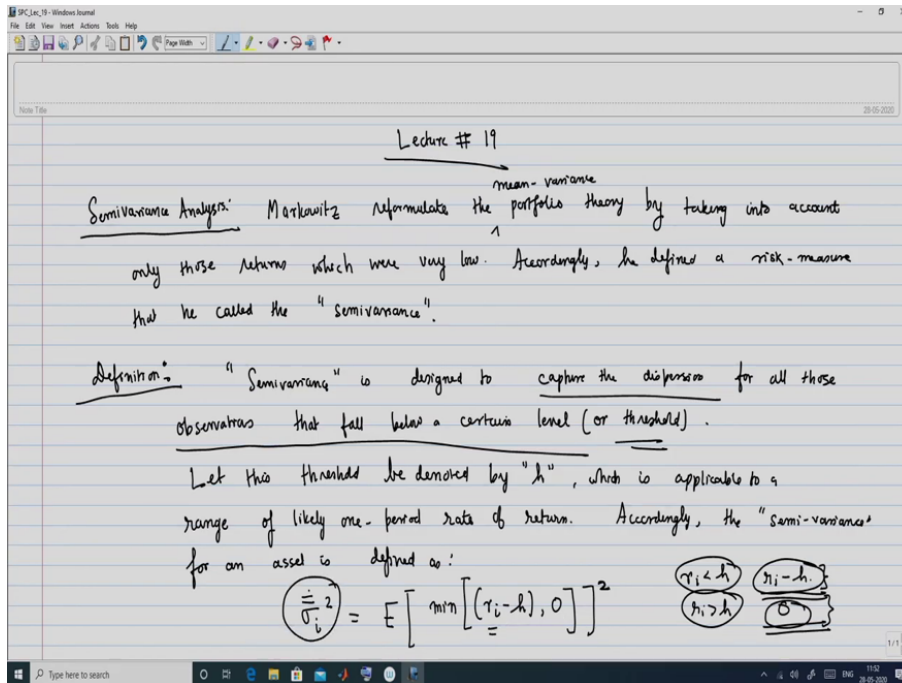 SPC_Lec_19 - Windows Journal
File Edit View Insert Actions Tools Help
Page Width
Note Title
28-05-2020
Lecture # 19
mean-variance
Semivariance Analysis: Markowitz reformulate the ^ portfolio theory by taking into account
only those returns which were very low. Accordingly, he defined a risk-measure
that he called the "semivariance".
Definition: "Semivariance" is designed to capture the dispersion for all those
observations that fall below a certain level (or threshold).
Let this threshold be denoted by "h", which is applicable to a
range of likely one-period rate of return. Accordingly, the "semi-variance"
for an asset is defined as:
r_i < h r_i - h.
σ̿_i² = E[ min[(r_i - h), 0] ]² r_i > h 0
1/1
Type here to search
ENG 11:52
28-05-2020